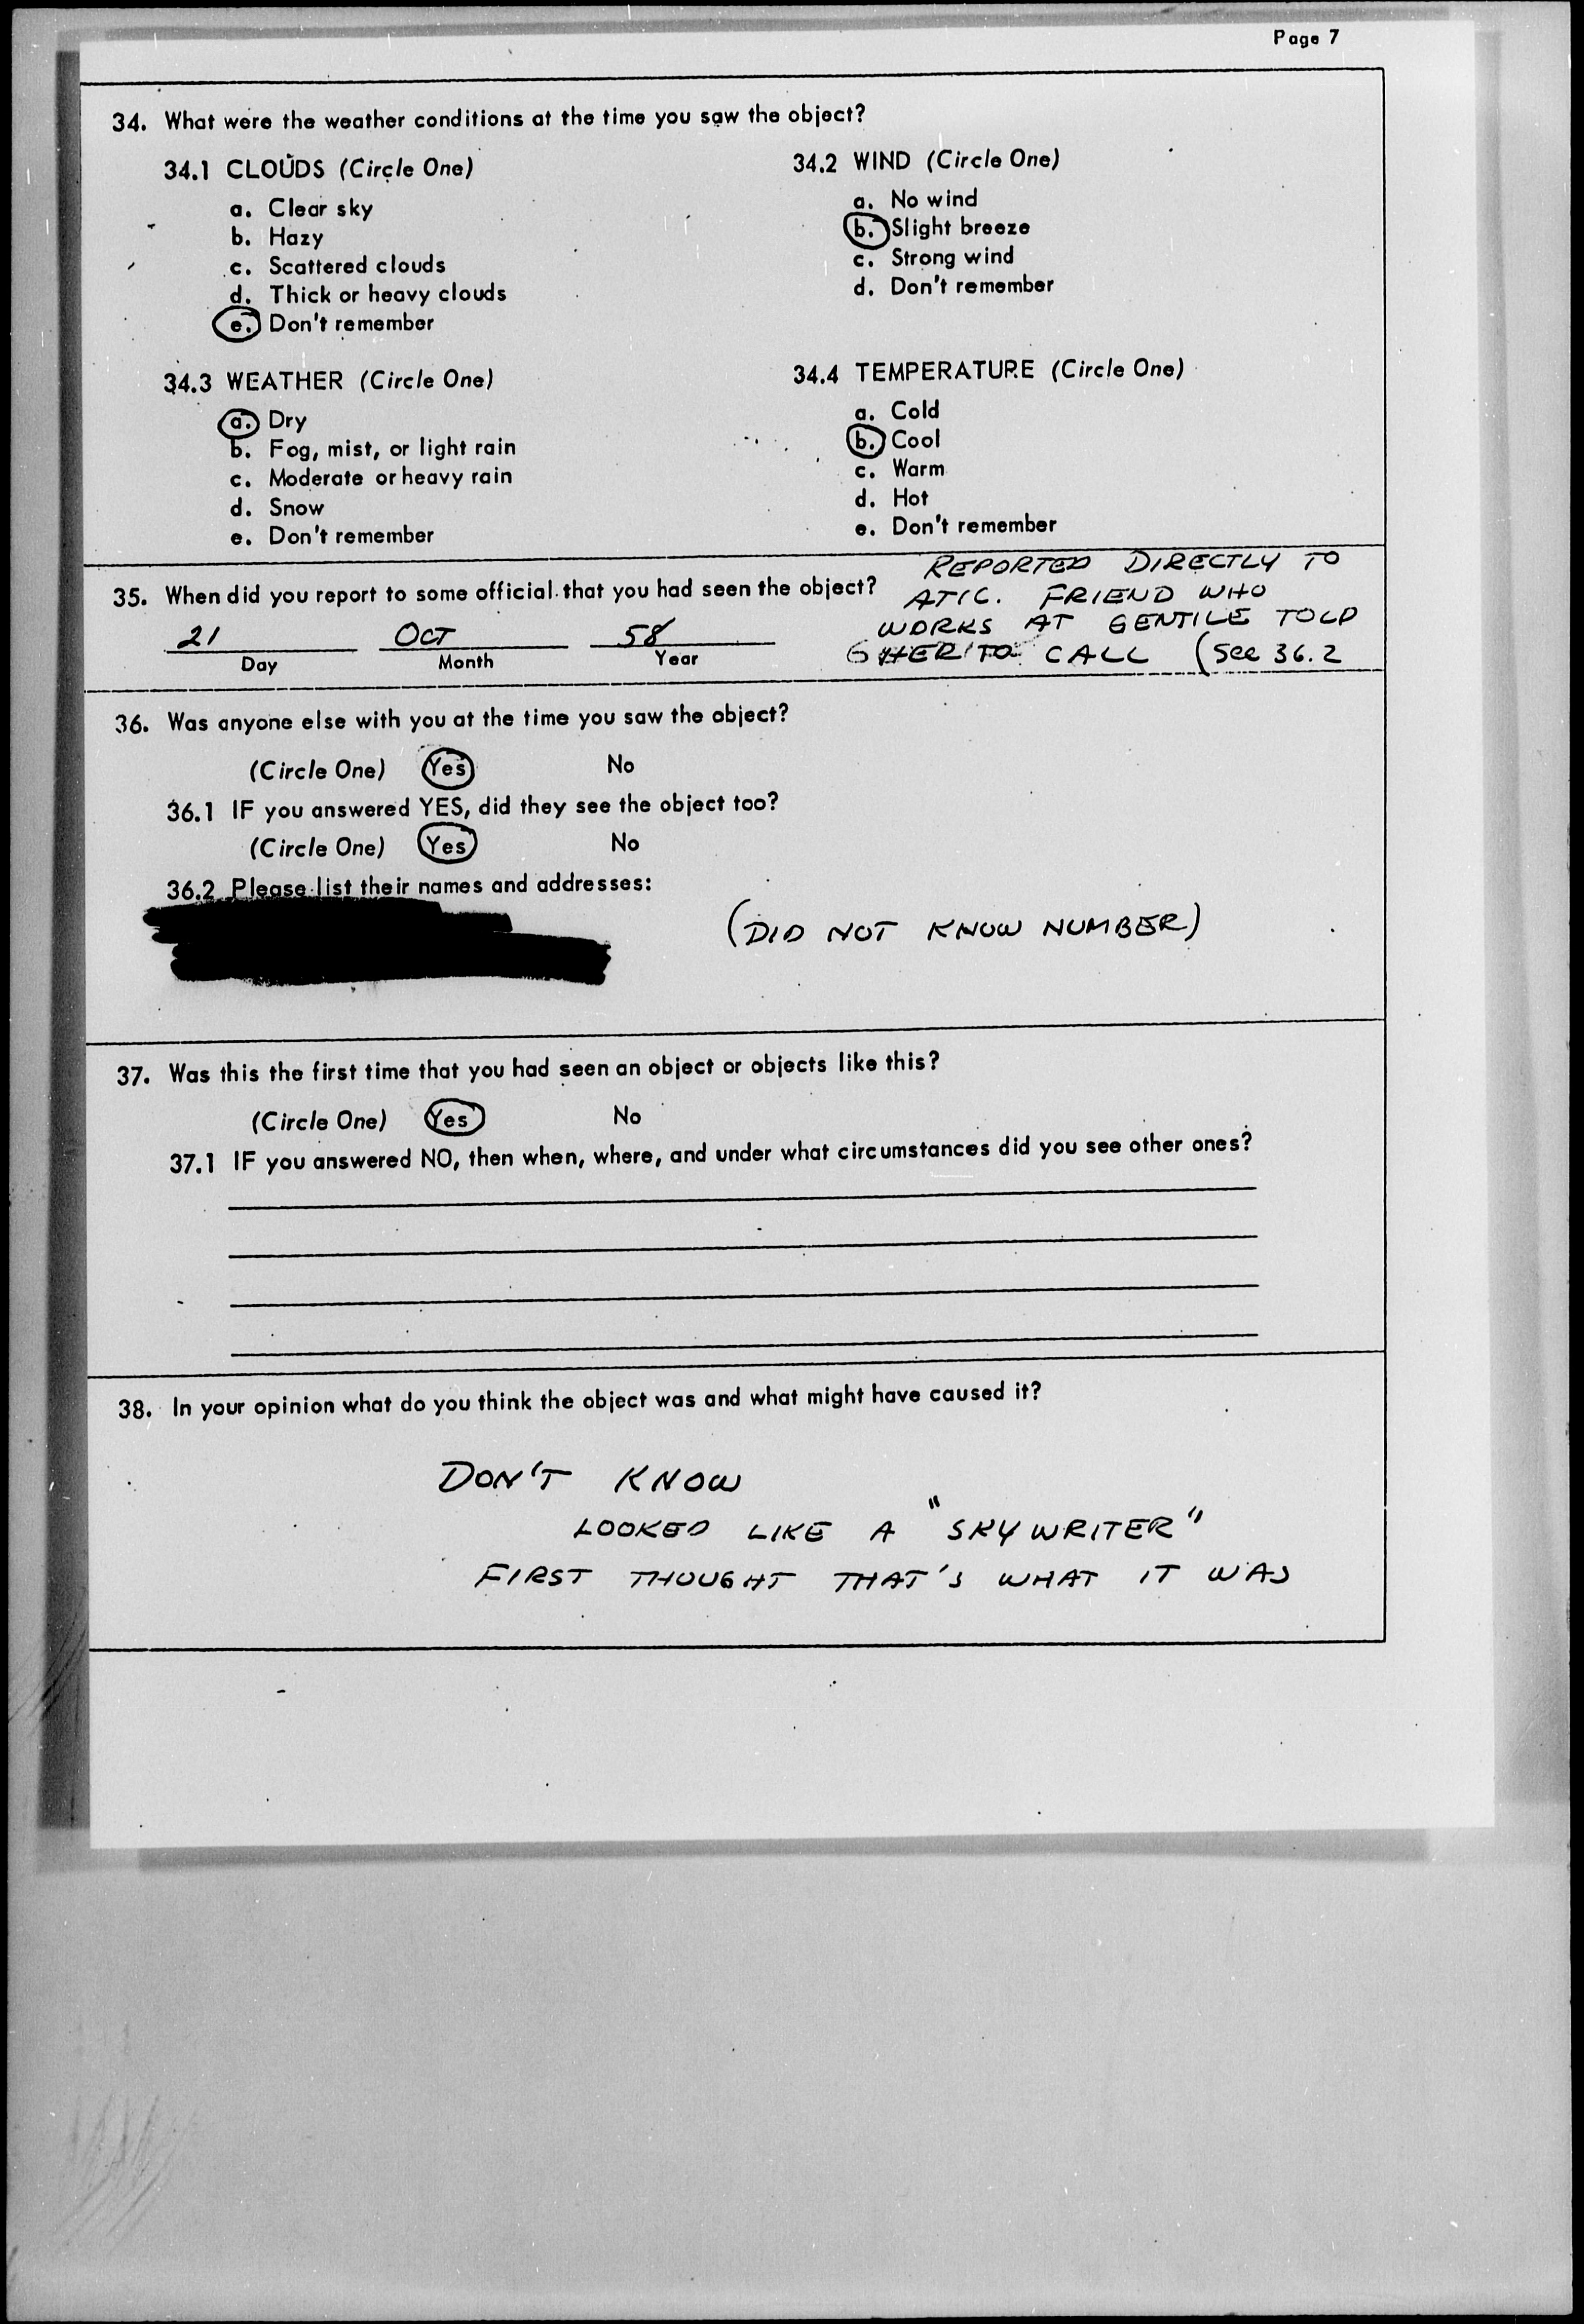 Page 7
34. What were the weather conditions at the time you saw the object?
34.1 CLOUDS (Circle One)
a. Clear sky
b. Hazy
c. Scattered clouds
d. Thick or heavy clouds
e. Don't remember
34.2 WIND (Circle One)
a. No wind
b. Slight breeze
c. Strong wind
d. Don't remember
34.3 WEATHER (Circle One)
a. Dry
b. Fog, mist, or light rain
c. Moderate or heavy rain
d. Snow
e. Don't remember
34.4 TEMPERATURE (Circle One)
a. Cold
b. Cool
c. Warm
d. Hot
e. Don't remember
35. When did you report to some official that you had seen the object?
21 OCT 58
Day Month Year
REPORTED DIRECTLY TO
ATIC. FRIEND WHO
WORKS AT GENTILE TOLD
HER TO CALL (See 36.2
36. Was anyone else with you at the time you saw the object?
(Circle One) Yes No
36.1 IF you answered YES, did they see the object too?
(Circle One) Yes No
36.2 Please list their names and addresses:
(DID NOT KNOW NUMBER)
37. Was this the first time that you had seen an object or objects like this?
(Circle One) Yes No
37.1 IF you answered NO, then when, where, and under what circumstances did you see other ones?
38. In your opinion what do you think the object was and what might have caused it?
DON'T KNOW
LOOKED LIKE A "SKYWRITER"
FIRST THOUGHT THAT'S WHAT IT WAS